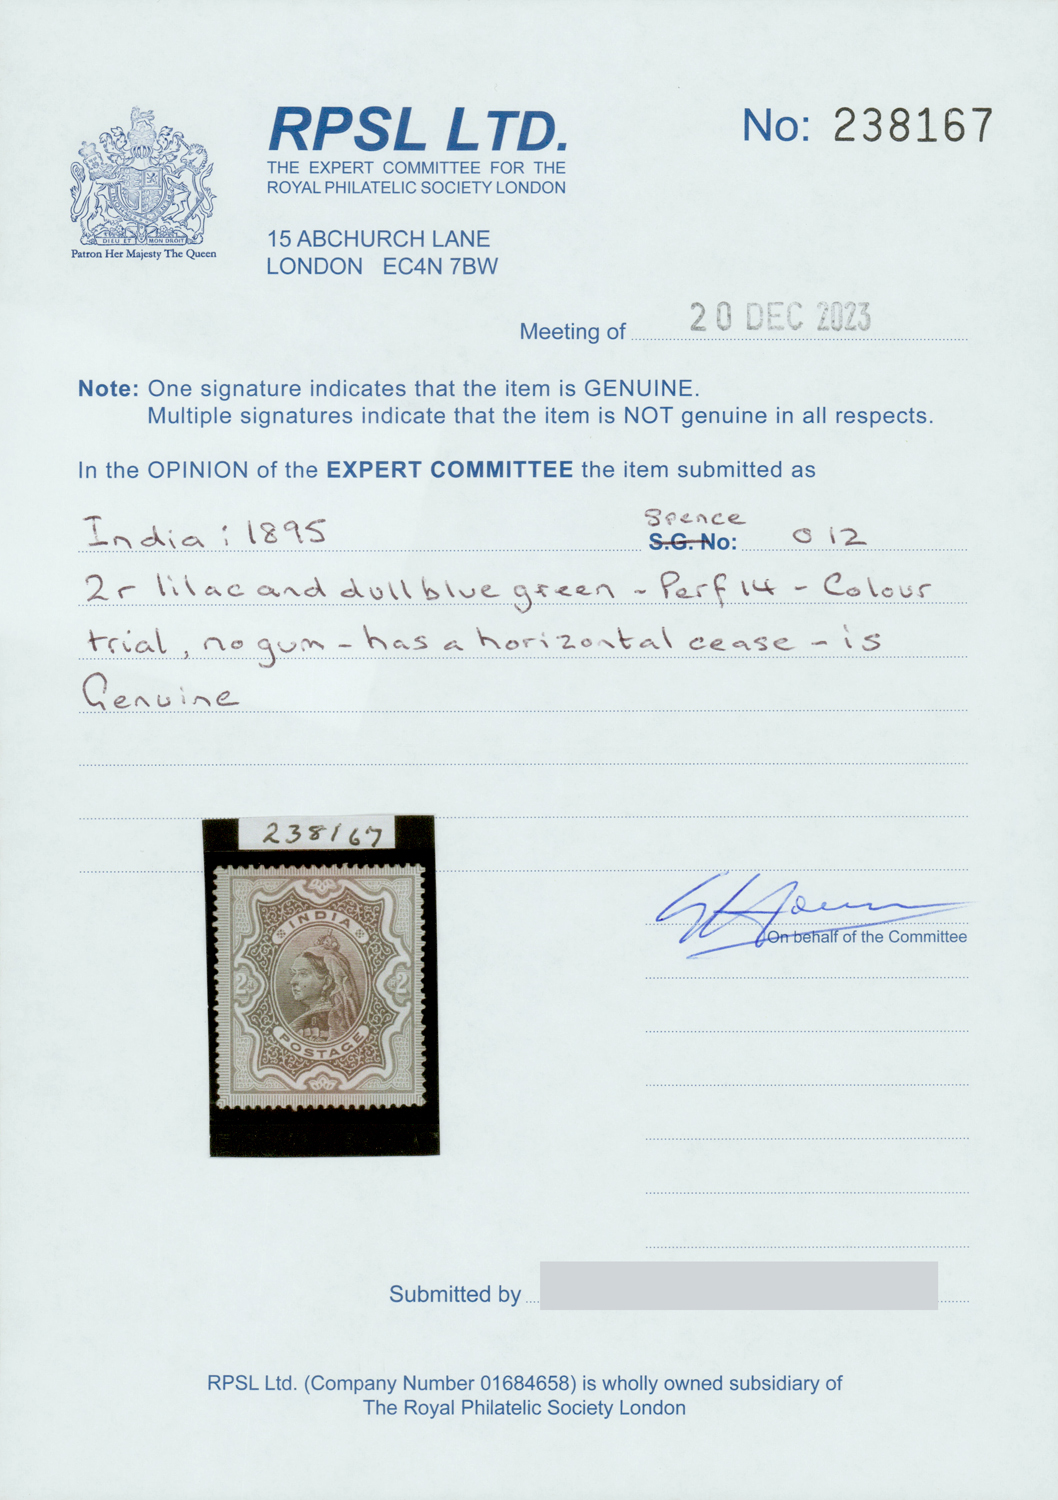 RPSL LTD.
THE EXPERT COMMITTEE FOR THE
ROYAL PHILATELIC SOCIETY LONDON
No: 238167
DIEU ET MON DROIT
Patron Her Majesty The Queen
15 ABCHURCH LANE
LONDON EC4N 7BW
Meeting of 20 DEC 2023
Note: One signature indicates that the item is GENUINE.
Multiple signatures indicate that the item is NOT genuine in all respects.
In the OPINION of the EXPERT COMMITTEE the item submitted as
Spence
India : 1895 S.G. No: 0 12
2r lilac and dull blue green - Perf 14 - Colour
trial, no gum - has a horizontal cease - is
Genuine
238167
INDIA
2 2
POSTAGE
On behalf of the Committee
Submitted by
RPSL Ltd. (Company Number 01684658) is wholly owned subsidiary of
The Royal Philatelic Society London